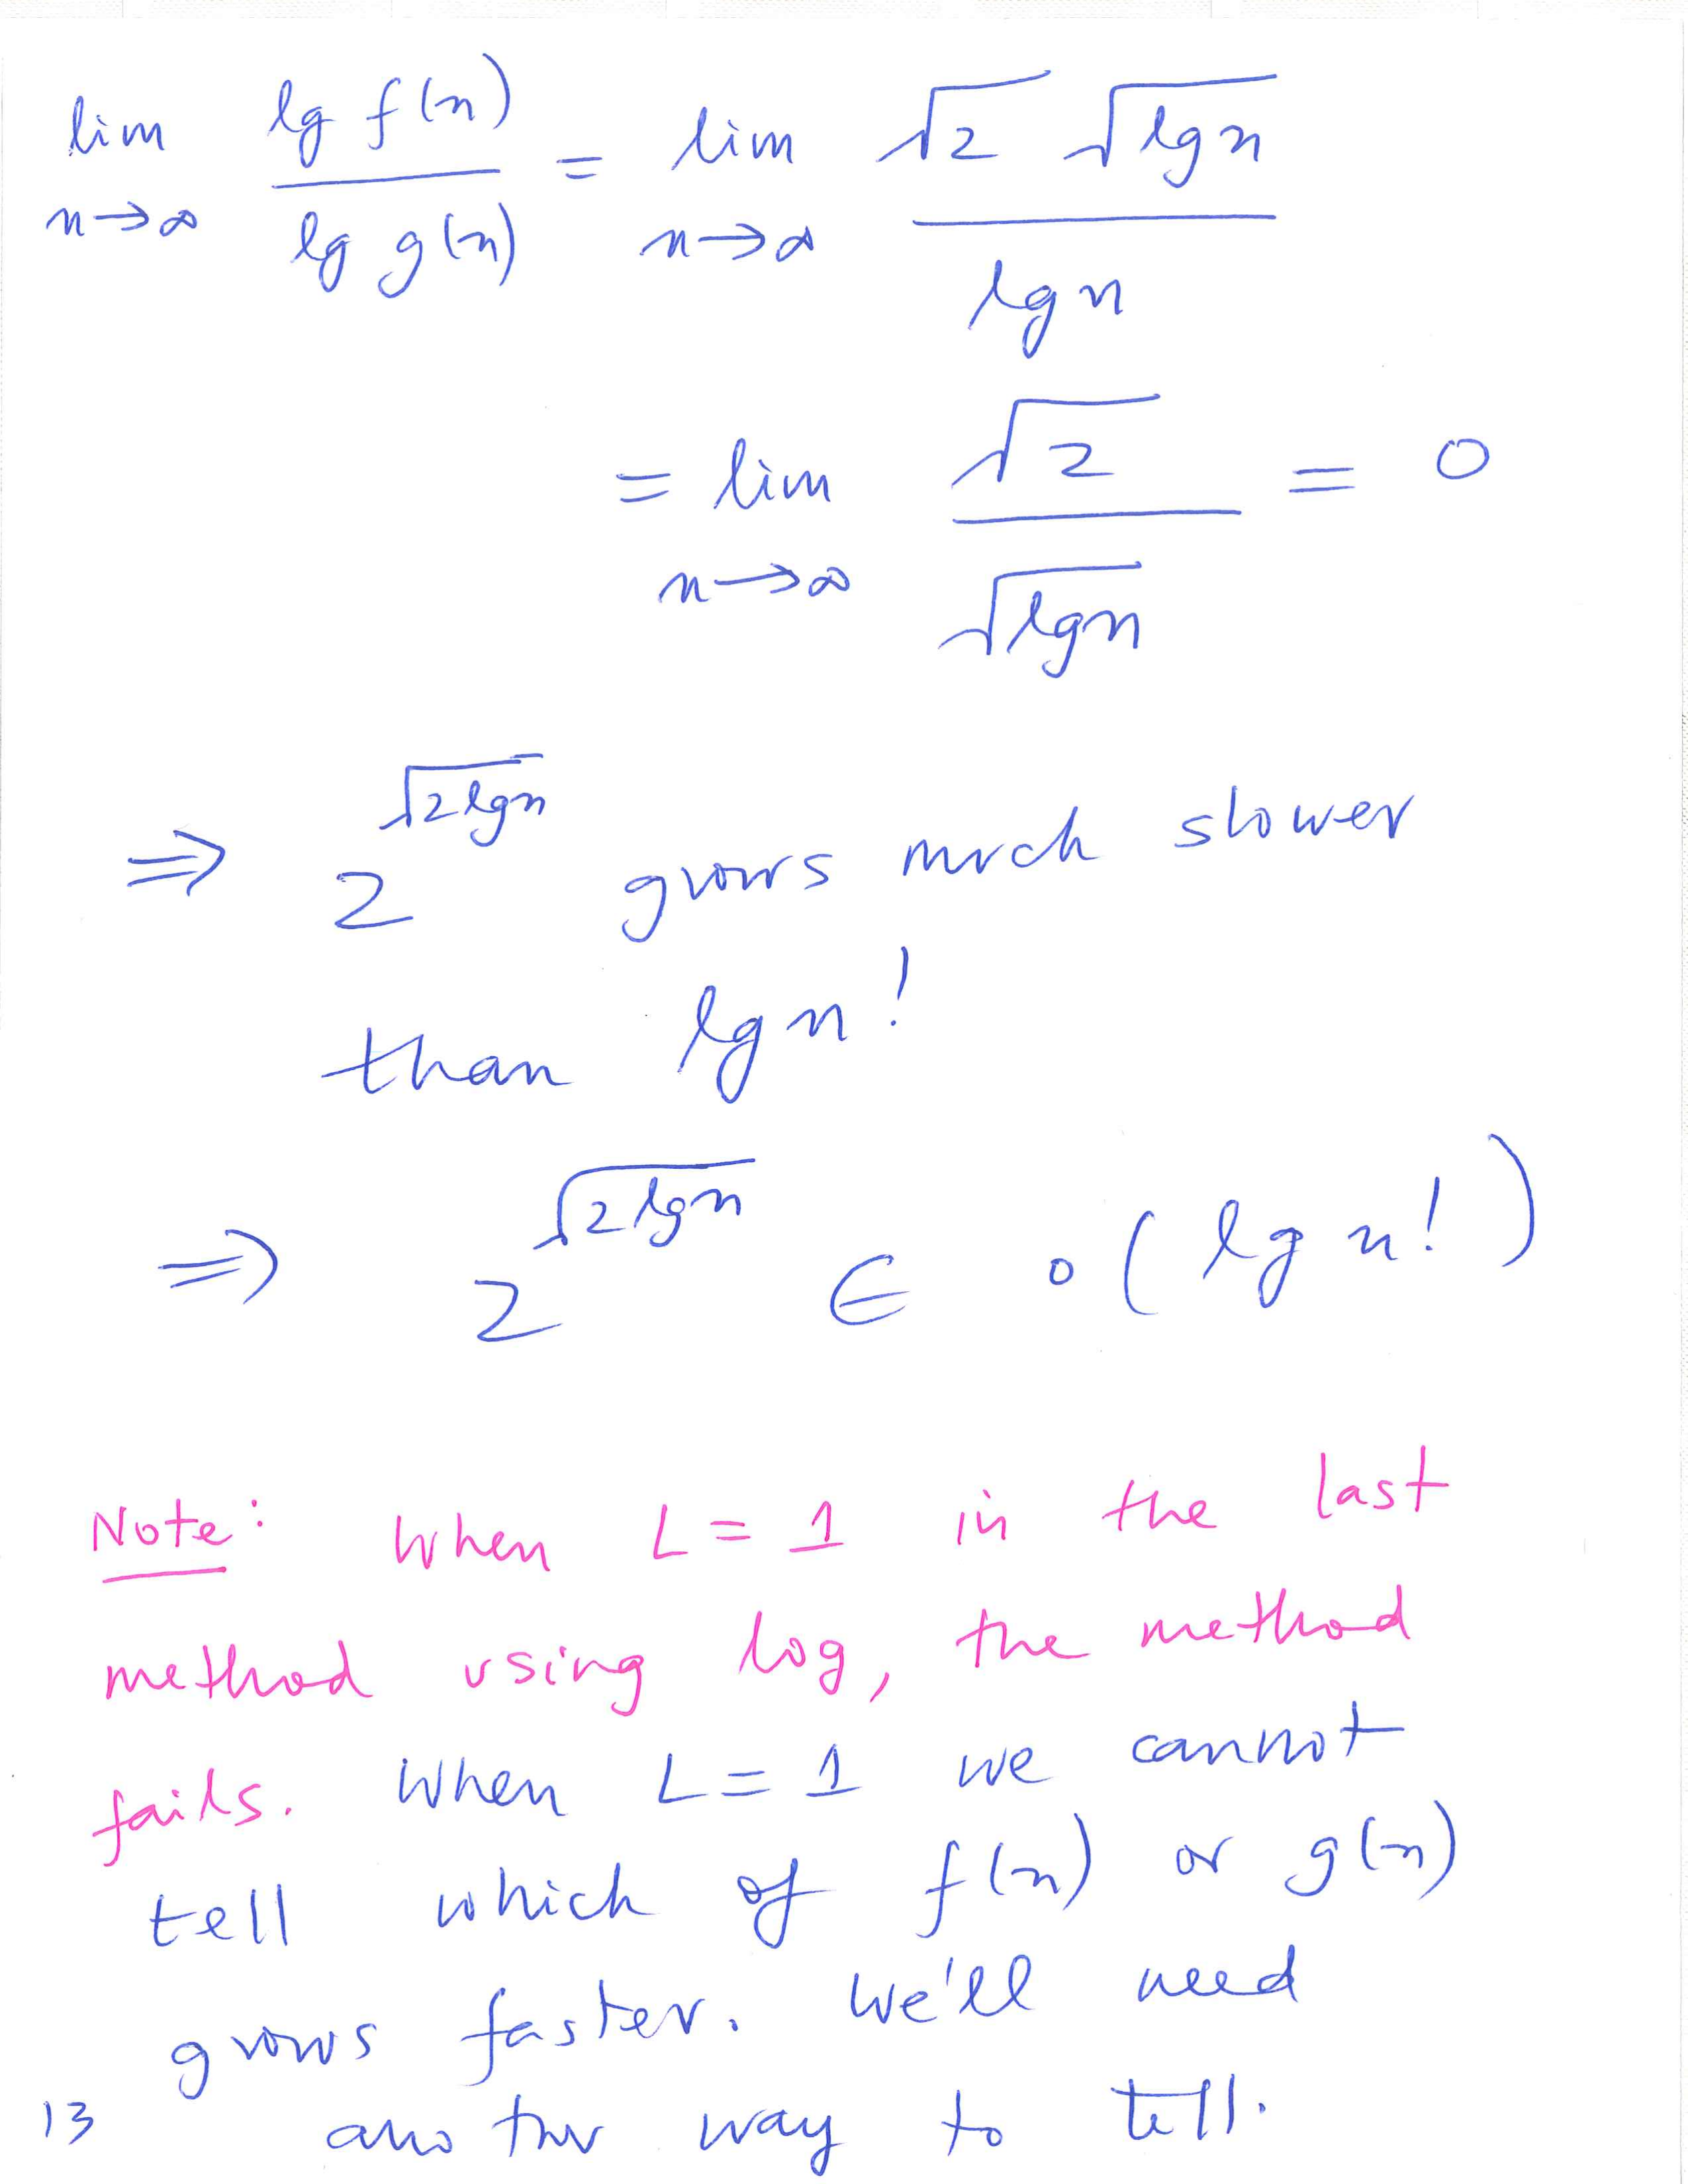 lim lg f(n) / lg g(n) = lim √2 √lg n / lg n
n→∞ n→∞
= lim √2 / √lg n = 0
n→∞
⇒ 2^√(2 lg n) grows much slower
than lg n!
⇒ 2^√(2 lg n) ∈ o(lg n!)
Note: when L = 1 in the last
method using log, the method
fails. When L = 1 we cannot
tell which of f(n) or g(n)
grows faster. We'll need
another way to tell.
13